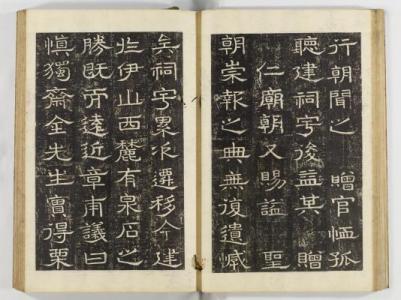 行朝聞之　贈官恤孤
聽建祠宇後益其　贈
仁廟朝又賜諡　聖
朝崇報之典無復遺憾
矣祠宇累次遷移今建
於伊山西麓有泉石之
勝既而遠近章甫議曰
愼獨齋金先生實得栗